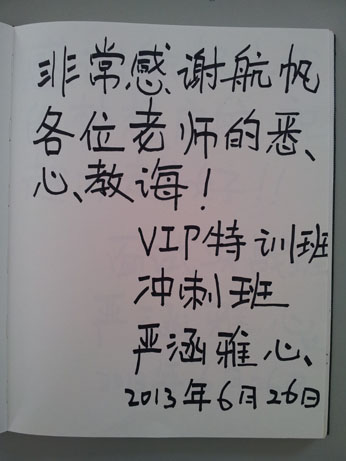 非常感谢航帆
各位老师的悉
心教诲!
VIP特训班
冲刺班
严涵雅心
2013年6月26日